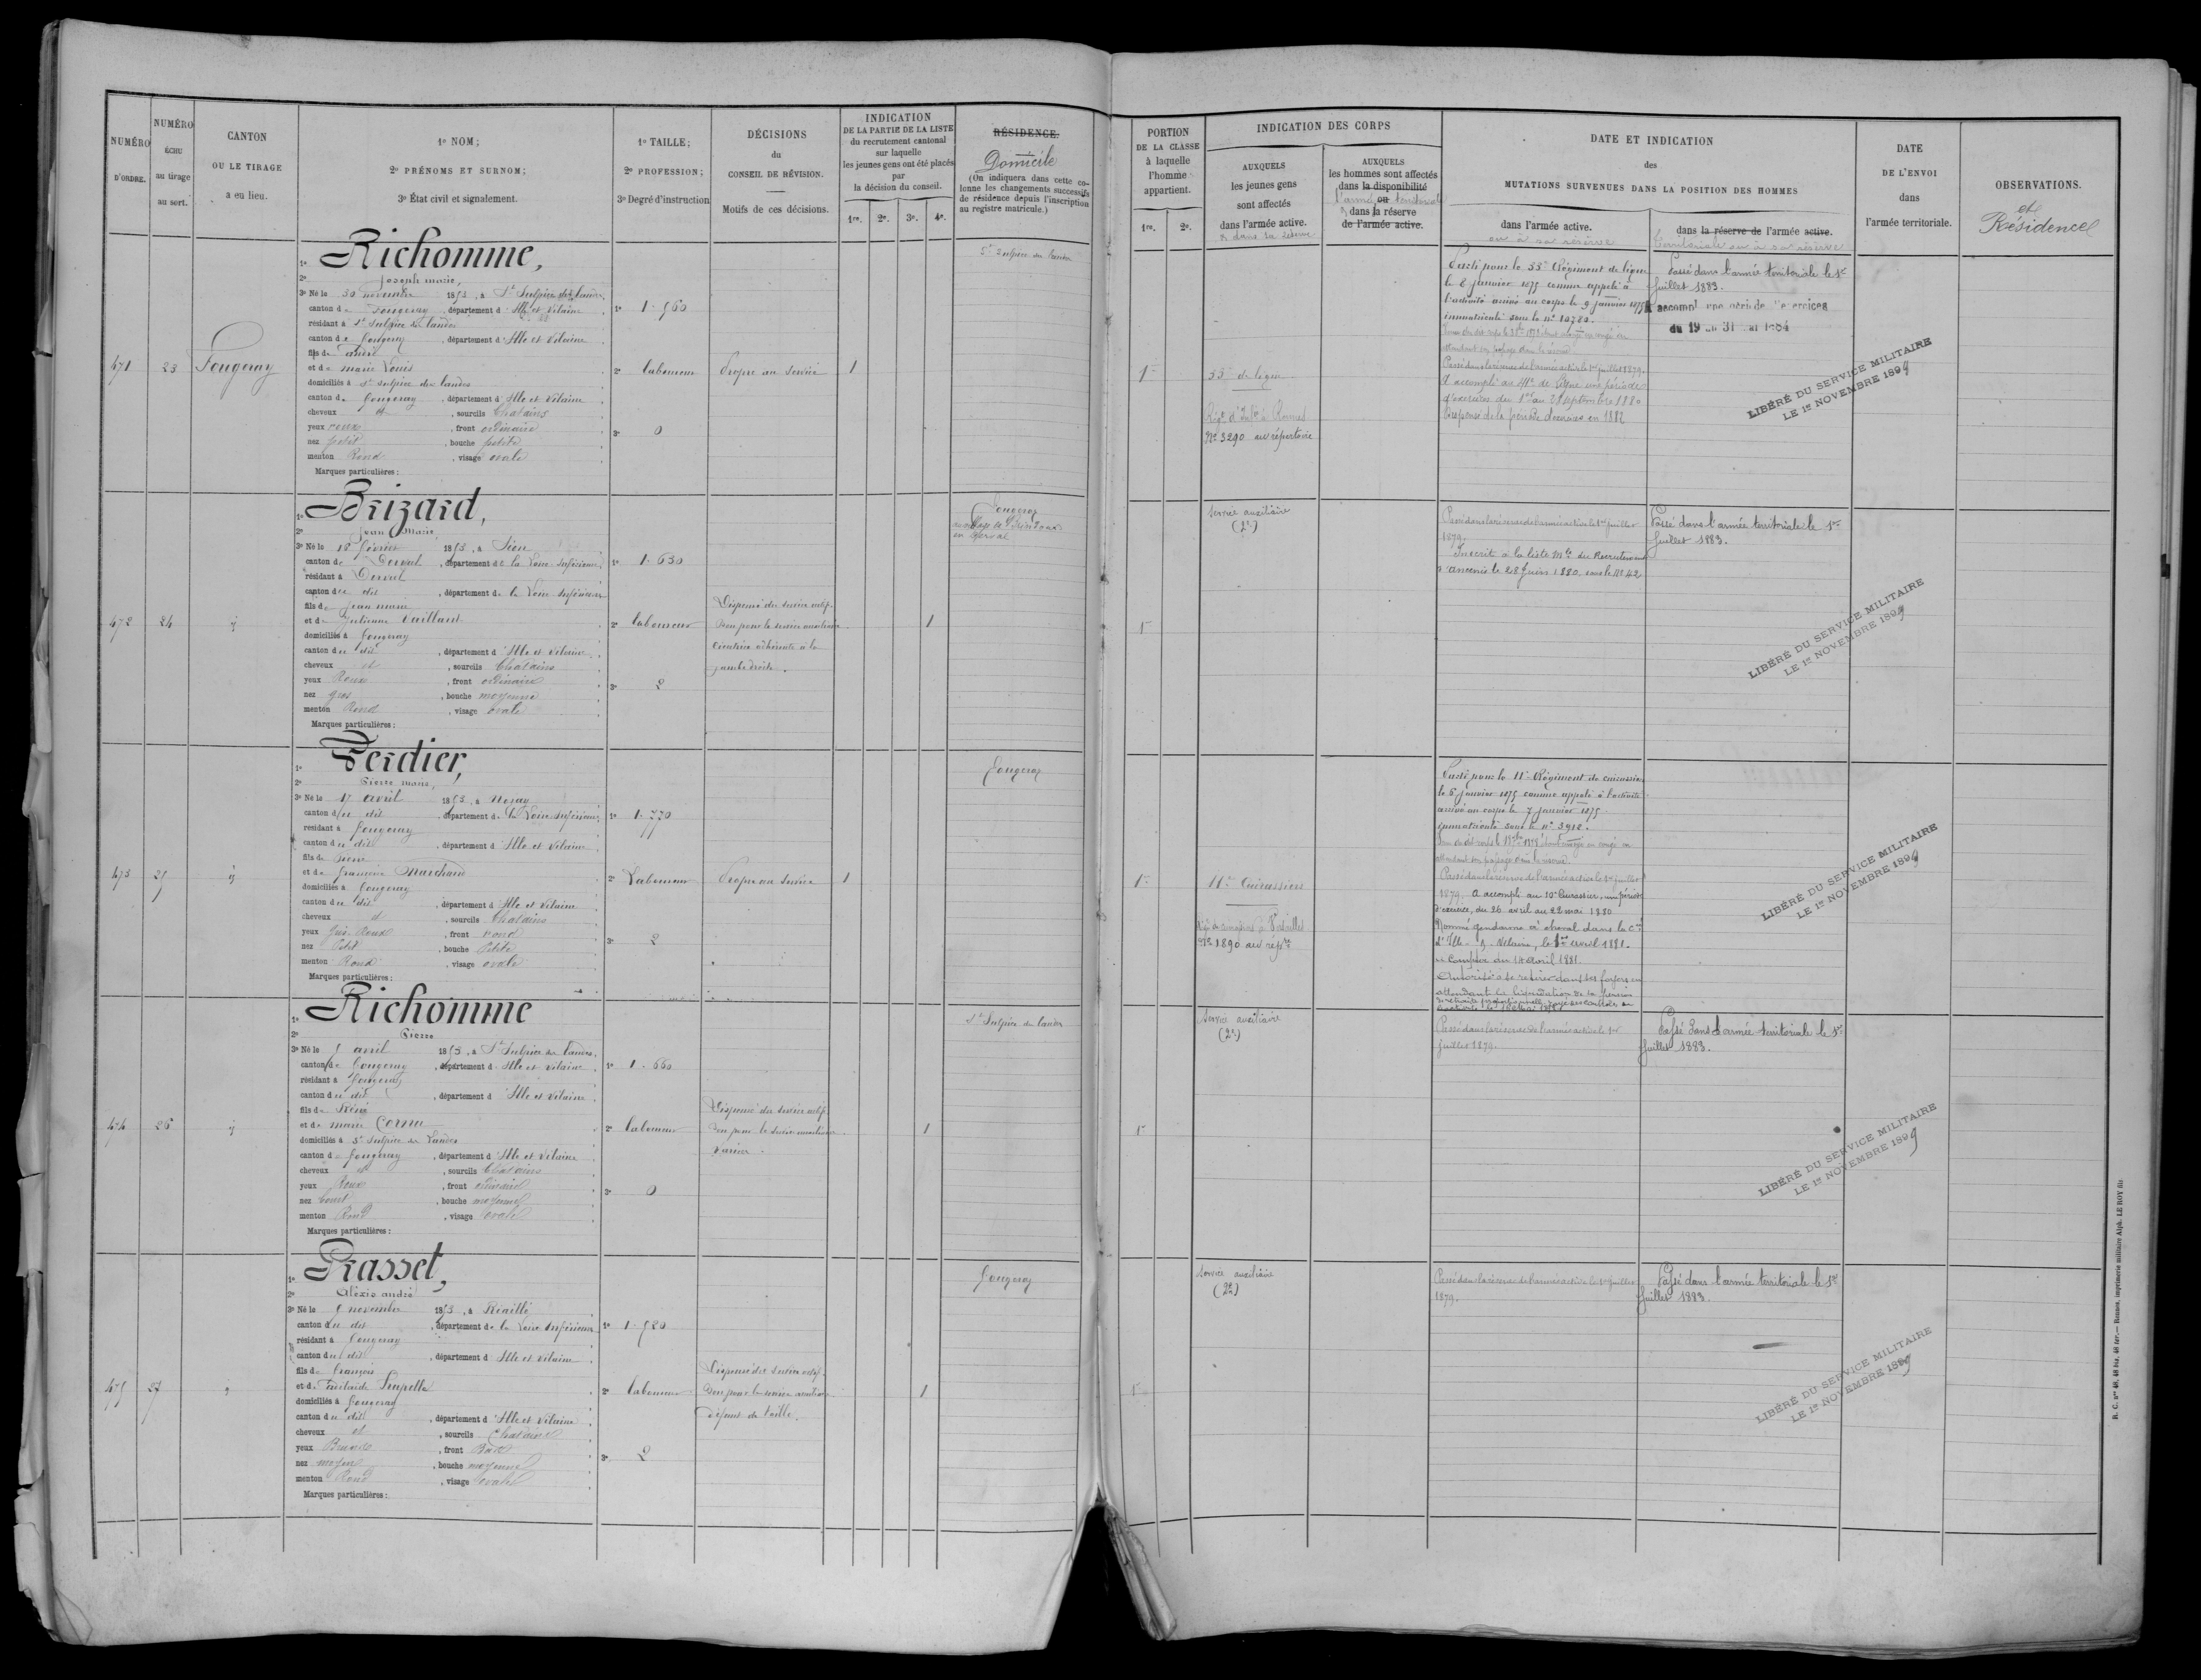 NUMÉRO
D'ORDRE.
NUMÉRO
ÉCHU
au tirage
au sort.
CANTON
OU LE TIRAGE
a eu lieu.
1º NOM;
2º PRÉNOMS ET SURNOM;
3º État civil et signalement.
1º TAILLE;
2º PROFESSION;
3º Degré d'instruction
DÉCISIONS
du
CONSEIL DE RÉVISION.
Motifs de ces décisions.
INDICATION
DE LA PARTIE DE LA LISTE
du recrutement cantonal
sur laquelle
les jeunes gens ont été placés
par
la décision du conseil.
1re. 2e. 3e. 4e.
RÉSIDENCE.
Domicile
(On indiquera dans cette co-
lonne les changements successifs
de résidence depuis l'inscription
au registre matricule.)
471
23
Fougeray
1º Richomme,
2º Joseph marie,
3º Né le 30 novembre 1853, à St Sulpice des landes,
canton de Fougeray, département d'Ille et Vilaine
résidant à St Sulpice des landes
canton de Fougeray, département d'Ille et Vilaine
fils de André
et de marie Louis
domiciliés à St Sulpice des landes
canton de Fougeray, département d'Ille et Vilaine
cheveux et, sourcils Chatains
yeux roux, front ordinaire
nez petit, bouche petite
menton Rond, visage ovale
Marques particulières:
1º 1.560
2º laboureur
3º 0
Propre au service
1
St Sulpice des landes
472
24
id
1º Brizard,
2º Jean Marie
3º Né le 18 février 1853, à Sion
canton de Derval, département de la Loire Inférieure,
résidant à Derval
canton du dit, département de la Loire Inférieure
fils de Jean marie
et de Julienne Vaillant
domiciliés à Fougeray
canton du dit, département d'Ille et Vilaine
cheveux et, sourcils Chatains
yeux Roux, front ordinaire
nez gros, bouche moyenne
menton Rond, visage ovale
Marques particulières:
1º 1.630
2º laboureur
3º 2
Dispensé du service actif.
Bon pour le service auxiliaire
Cicatrice adhérente à la
jambe droite.
1
Fougeray
en Derval
473
25
id
1º Verdier,
2º Pierre marie,
3º Né le 17 avril 1853, à Nozay
canton du dit, département de la Loire Inférieure,
résidant à Fougeray
canton du dit, département d'Ille et Vilaine
fils de Pierre
et de françoise Marchand
domiciliés à Fougeray
canton du dit, département d'Ille et Vilaine
cheveux et, sourcils Chatains
yeux Gris-Roux, front rond
nez Petit, bouche Petite
menton Rond, visage ovale
Marques particulières:
1º 1.770
2º Laboureur
3º 2
Propre au service
1
Fougeray
474
26
id
1º Richomme
2º Pierre
3º Né le 5 avril 1853, à St Sulpice des landes,
canton de Fougeray, département d'Ille et Vilaine
résidant à Fougeray
canton du dit, département d'Ille et Vilaine
fils de René
et de marie Cornu
domiciliés à St Sulpice des Landes
canton de Fougeray, département d'Ille et Vilaine
cheveux et, sourcils Chatains
yeux Roux, front ordinaire
nez court, bouche moyenne
menton Rond, visage ovale
Marques particulières:
1º 1.660
2º laboureur
3º 0
Dispensé du service actif
Bon pour le service auxiliaire
Varices.
1
St Sulpice des landes
475
27
1º Grasset,
2º Alexis andré
3º Né le 5 novembre 1853, à Riaillé
canton du dit, département de la Loire Inférieure
résidant à Fougeray
canton du dit, département d'Ille et Vilaine
fils de François
et de Adélaïde
domiciliés à Fougeray
canton du dit, département d'Ille et Vilaine
cheveux et, sourcils Chatains
yeux Bruns, front Bas
nez moyen, bouche moyenne
menton Rond, visage ovale
Marques particulières:
1º 1.520
2º laboureur
3º 2
Dispensé du service actif
Bon pour le service auxiliaire
défaut de taille.
1
Fougeray
PORTION
DE LA CLASSE
à laquelle
l'homme
appartient.
1re. 2e.
INDICATION DES CORPS
AUXQUELS
les jeunes gens
sont affectés
dans l'armée active.
& dans sa réserve
AUXQUELS
les hommes sont affectés
dans la disponibilité
l'armée ou territoriale
& dans la réserve
de l'armée active.
DATE ET INDICATION
des
MUTATIONS SURVENUES DANS LA POSITION DES HOMMES
dans l'armée active.
ou à sa réserve
dans la réserve de l'armée active.
territoriale ou à sa réserve
DATE
DE L'ENVOI
dans
l'armée territoriale.
OBSERVATIONS.
et
Résidence
1re
33e de ligne
Rgt d'Infie à Rennes
No 3290 au répertoire
Parti pour le 33e Régiment de ligne
le 6 janvier 1875 comme appelé à
l'activité arrivé au corps le 9 janvier 1875
immatriculé sous le no 10780.
attendant son passage dans la réserve
Passé dans la réserve de l'armée active le 1er juillet 1879.
A accompli au 41e de Ligne une période
d'exercices du 1er au 28 septembre 1880
Dispensé de la période d'exercices en 1882
Passé dans l'armée territoriale le 1er
Juillet 1883.
A accompli une période d'exercices
du 19 au 31 mai 1884
LIBÉRÉ DU SERVICE MILITAIRE
LE 1er NOVEMBRE 1899
1re
Service auxiliaire
(2e)
Passé dans la réserve de l'armée active le 1er juillet
1879.
Inscrit à la liste Mle du Recrutement
d'Ancenis le 28 Juin 1880 sous le No 42
Passé dans l'armée territoriale le 1er
Juillet 1883.
LIBÉRÉ DU SERVICE MILITAIRE
LE 1er NOVEMBRE 1899
1re
11e Cuirassiers
No 1890 au répre
Parti pour le 11e Régiment de cuirassiers
le 6 janvier 1875 comme appelé à l'activité
arrivé au corps le 7 janvier 1875
immatriculé sous le no 3918.
attendant son passage dans la réserve.
Passé dans la réserve de l'armée active le 1er juillet
1879. A accompli au 10e Cuirassiers, une période
d'exercice, du 26 avril au 22 mai 1880
Nommé gendarme à cheval dans la Cie
d'Ille-&-Vilaine, le 1er avril 1881.
à Compter du 14 avril 1881.
Autorisé à se retirer dans ses foyers en
attendant la liquidation de sa pension
de retraite proportionnelle, rayé des contrôles de
LIBÉRÉ DU SERVICE MILITAIRE
LE 1er NOVEMBRE 1899
1re
Service auxiliaire
(2e)
Passé dans la réserve de l'armée active le 1er
juillet 1879.
Passé dans l'armée territoriale le 1er
Juillet 1883.
LIBÉRÉ DU SERVICE MILITAIRE
LE 1er NOVEMBRE 1899
1re
Service auxiliaire
(2e)
Passé dans la réserve de l'armée active le 1er juillet
1879.
Passé dans l'armée territoriale le 1er
Juillet 1883.
LIBÉRÉ DU SERVICE MILITAIRE
LE 1er NOVEMBRE 1899
R. C. nos 48, 48 bis, 48 ter.— Rennes, imprimerie militaire Alph. LE ROY fils